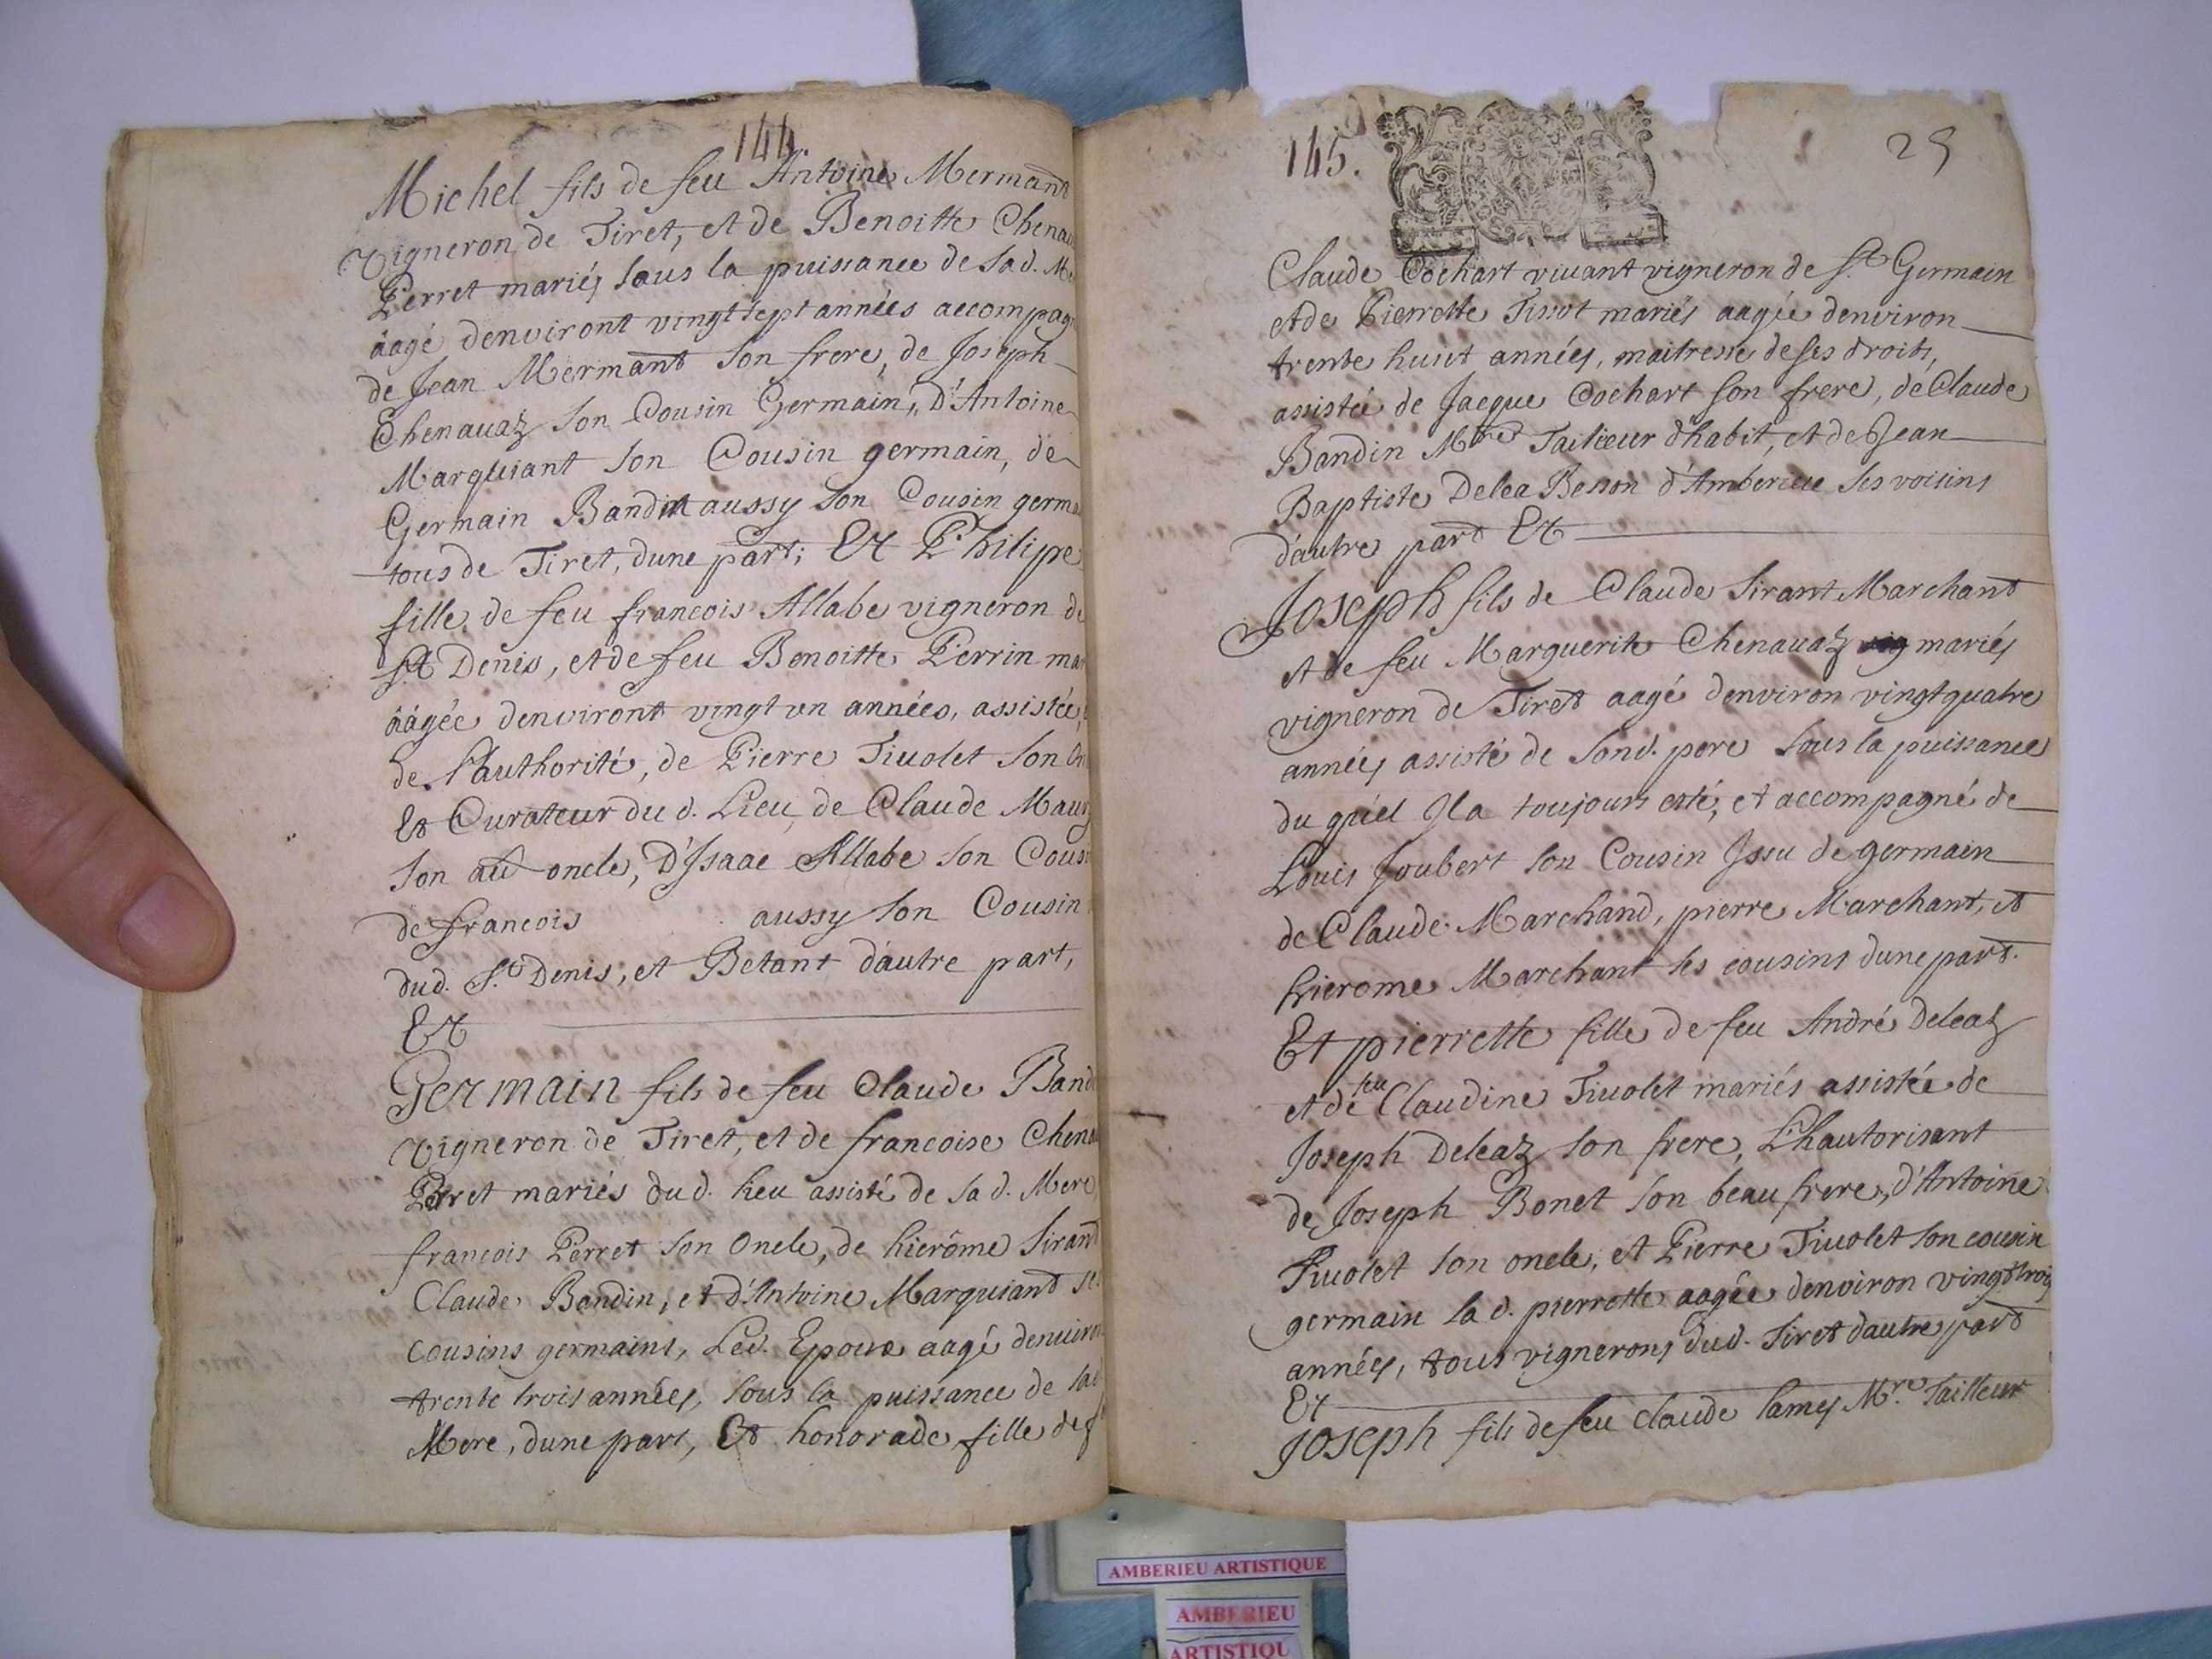 144
Michel fils de feu Antoine Mermant
vigneron de Tiret, et de Benoitte Chenau
Perret mariés sous la puissance de sa d. Me
âagé denviront vingt sept années accompag
de Jean Mermant son frere, de Joseph
Chenauaz son Cousin Germain, D'Antoine
Marquiant son Cousin germain, de
Germain Bandin aussy son Cousin germa
tous de Tiret, dune part; Et Philipe
fille de feu francois Allabe vigneron de
St Denis, et de feu Benoitte Perrin mar
âagée denviront vingt un années, assistée,
de l'authorité, de Pierre Tiuolet son On
Et Curateur du d. Lieu, de Claude
son aut oncle, D'Isaac Allabe son Cousi
de francois aussy son Cousin
dud. St. Denis, et Betant d'autre part,
Et
Germain fils de feu Claude Band
vigneron de Tiret, et de francoise Chena
Perret mariés dud. lieu assisté de sa d. Mere,
francois Perret son Oncle, de hierôme Sirant
Claude Bandin, et d'Antoine Marquiand se
cousins germains, Led. Epoux aagé denuiron
trente trois années, sous la puissance de sad
Mere, dune part, Et honorade fille de f
145.
25
Claude Cochart viuant vigneron de St. Germain
et de Pierrette Tissot mariés aagée denviron
trente huit années, maitresse de ses droits,
assistée de Jacque Cochart son frere, de Claude
Bandin Mtre Tailieur d'habit, et de Jean
Baptiste Delea Besson d'Amberieu ses voisins
d'autre part Et
Joseph fils de Claude Sirant Marchant
et de feu Marguerite Chenauaz mariés
vigneron de Tiret aagé denviron vingt quatre
années assisté de sond. pere sous la puissance
du quel Il a toujours esté, et accompagné de
Louis Joubert son Cousin Issu de germain
de Claude Marchand, pierre Marchant, et
hierome Marchant ses cousins dune part.
Et pierrette fille de feu André Deleaz
et de feu Claudine Tiuolet mariés assistée de
Joseph Deleaz son frere, L'hautorisant
de Joseph Bonet son beau frere, d'Antoine
Tiuolet son oncle, et Pierre Tiuolet son cousin
germain la d. pierrette aagée denviron vingt trois
années, tous vignerons dud. Tiret dautre part
Et
Joseph fils de feu Claude Mre. tailleur
AMBERIEU ARTISTIQUE
AMBERIEU
ARTISTIQU